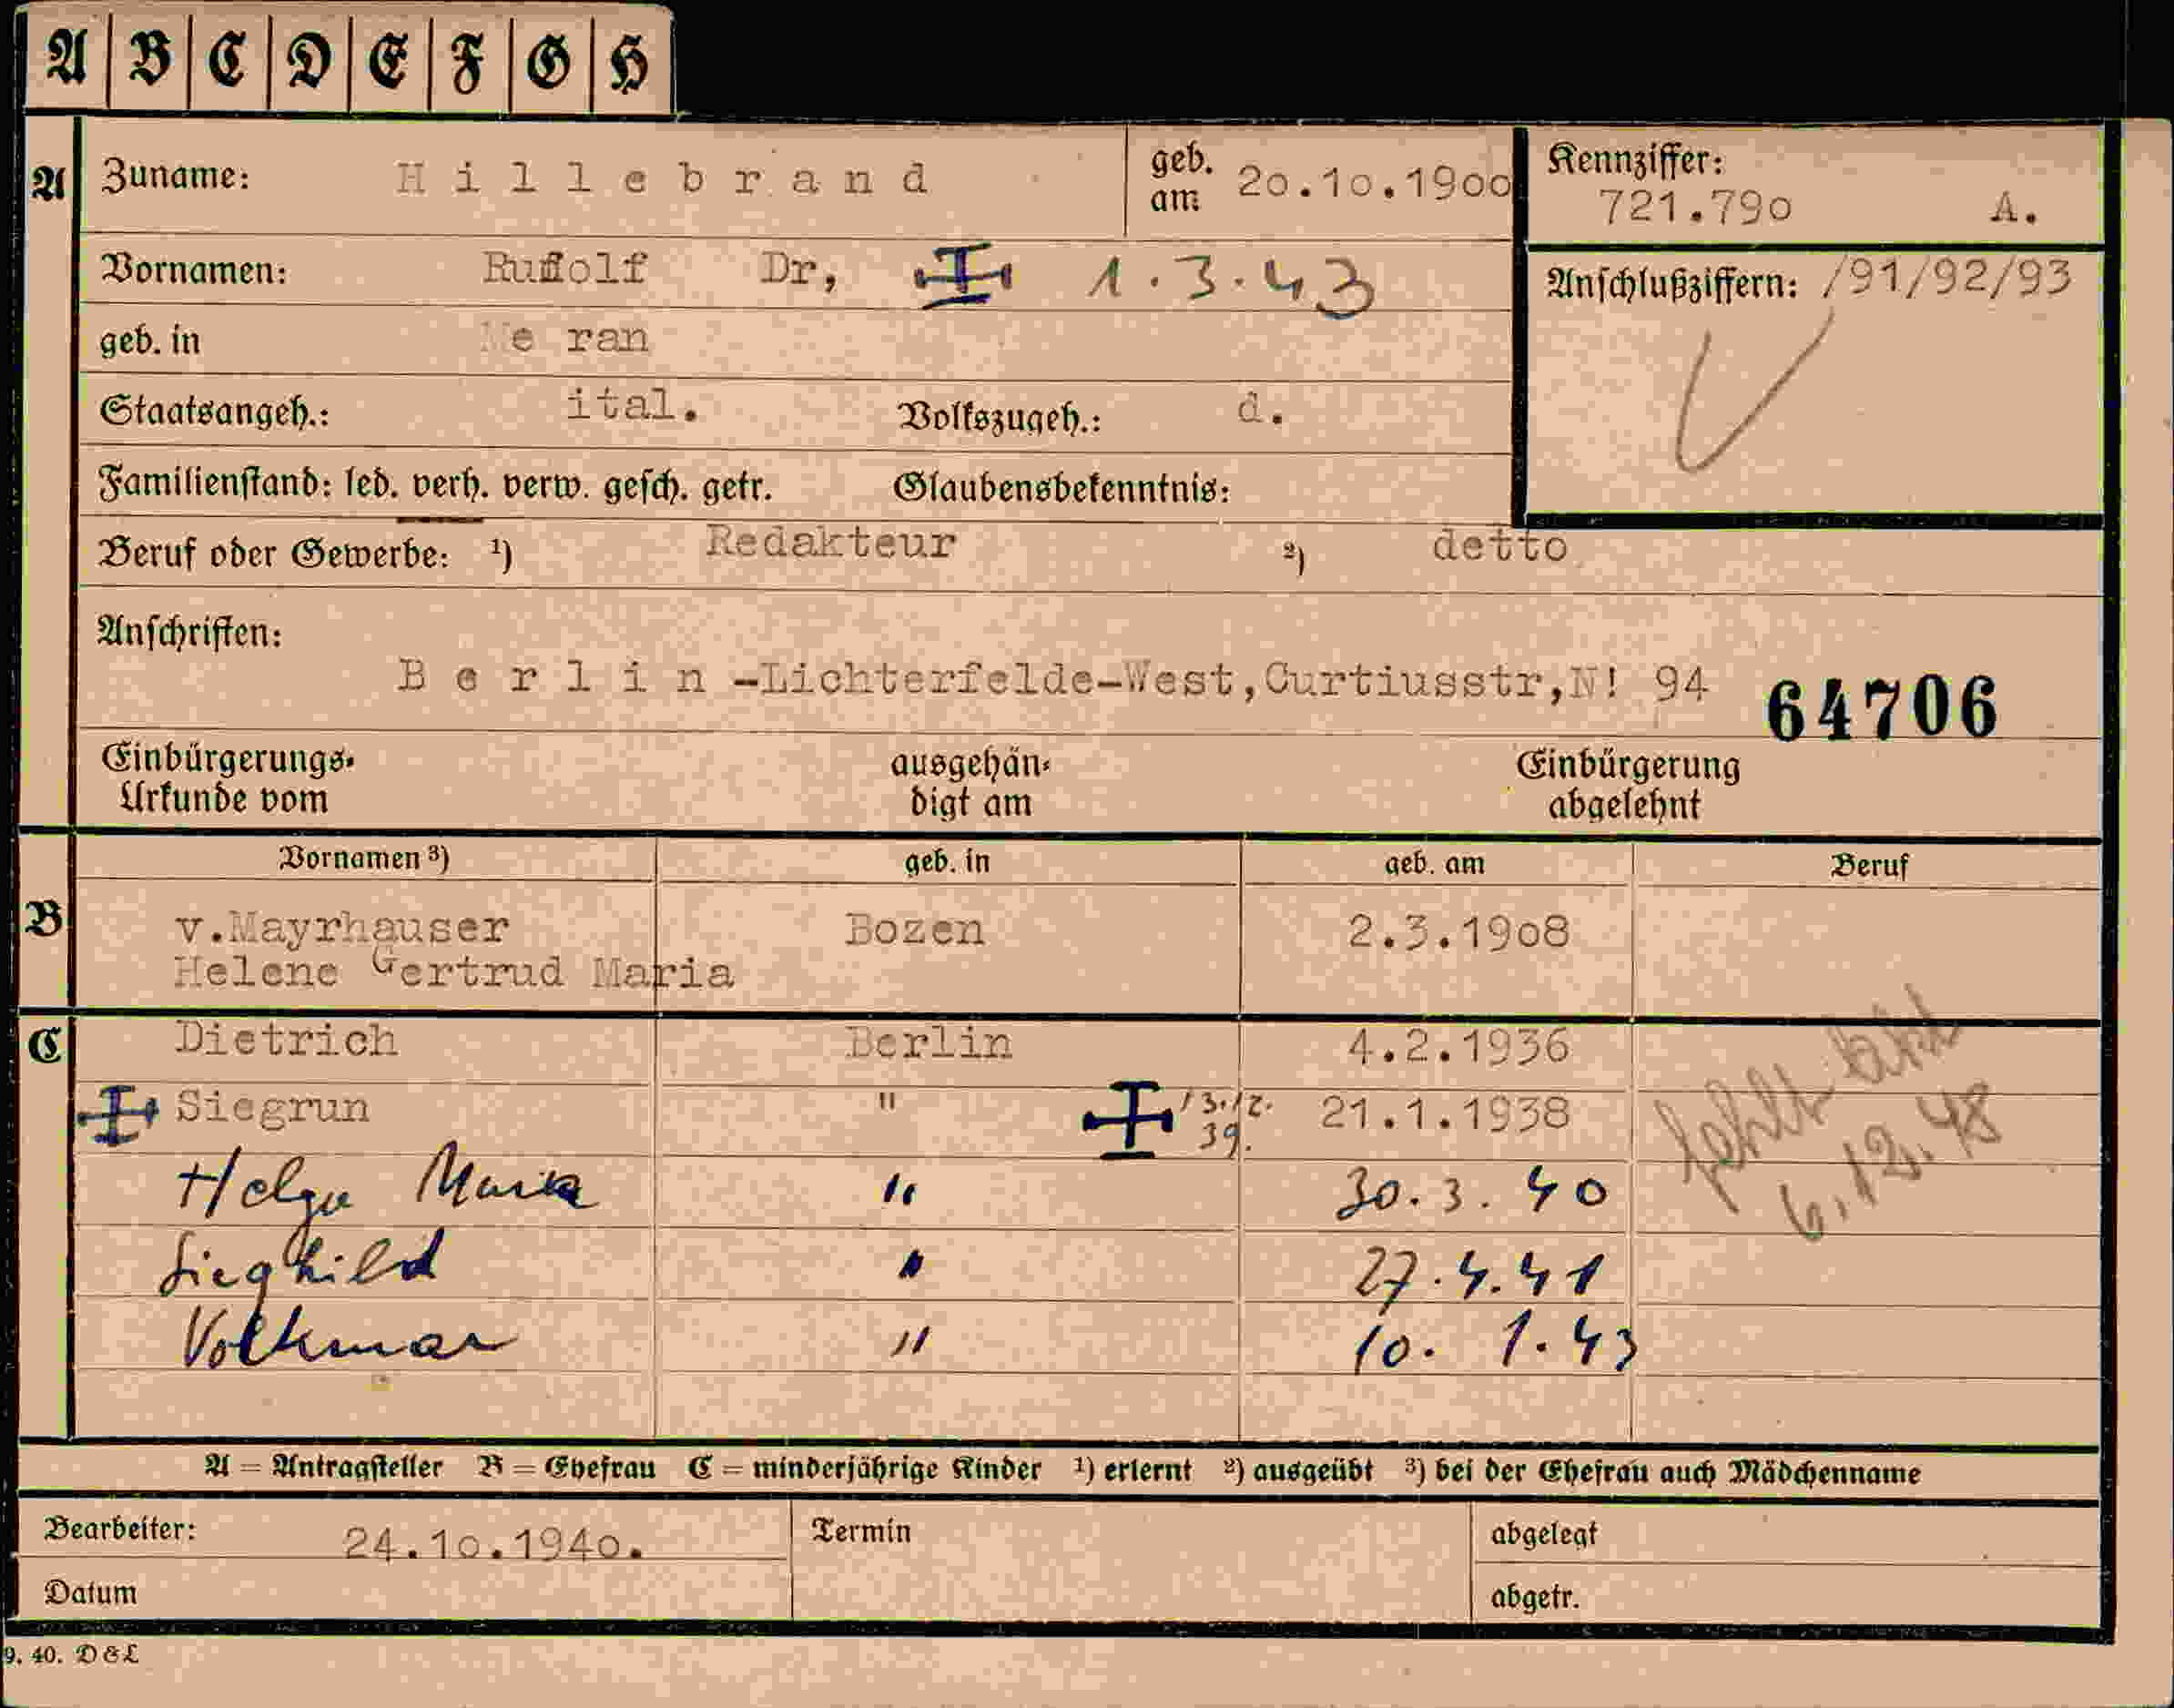 A B C D E F G H
A Zuname: Hillebrand geb. am 20.10.1900 Kennziffer: 721.790 A.
Vornamen: Rudolf Dr, 1.3.43 Anschlußziffern: /91/92/93
geb. in Me ran
Staatsangeh.: ital. Volkszugeh.: d.
Familienstand: led. verh. verw. gesch. getr. Glaubensbekenntnis:
Beruf oder Gewerbe: ¹) Redakteur ²) detto
Anschriften:
Berlin-Lichterfelde-West,Curtiusstr,N! 94 64706
Einbürgerungs-Urkunde vom ausgehändigt am Einbürgerung abgelehnt
Vornamen ³) geb. in geb. am Beruf
B v.Mayrhauser Bozen 2.3.1908
Helene Gertrud Maria
C Dietrich Berlin 4.2.1936
Siegrun " 13.12.39. 21.1.1938
Helga Maria " 30.3.40
Sieghild " 27.4.41
Volkmar " 10.1.43
fehlt Akt
6.12.48
A = Antragsteller B = Ehefrau C = minderjährige Kinder ¹) erlernt ²) ausgeübt ³) bei der Ehefrau auch Mädchenname
Bearbeiter: 24.10.1940. Termin abgelegt
Datum abgetr.
9. 40. D & L